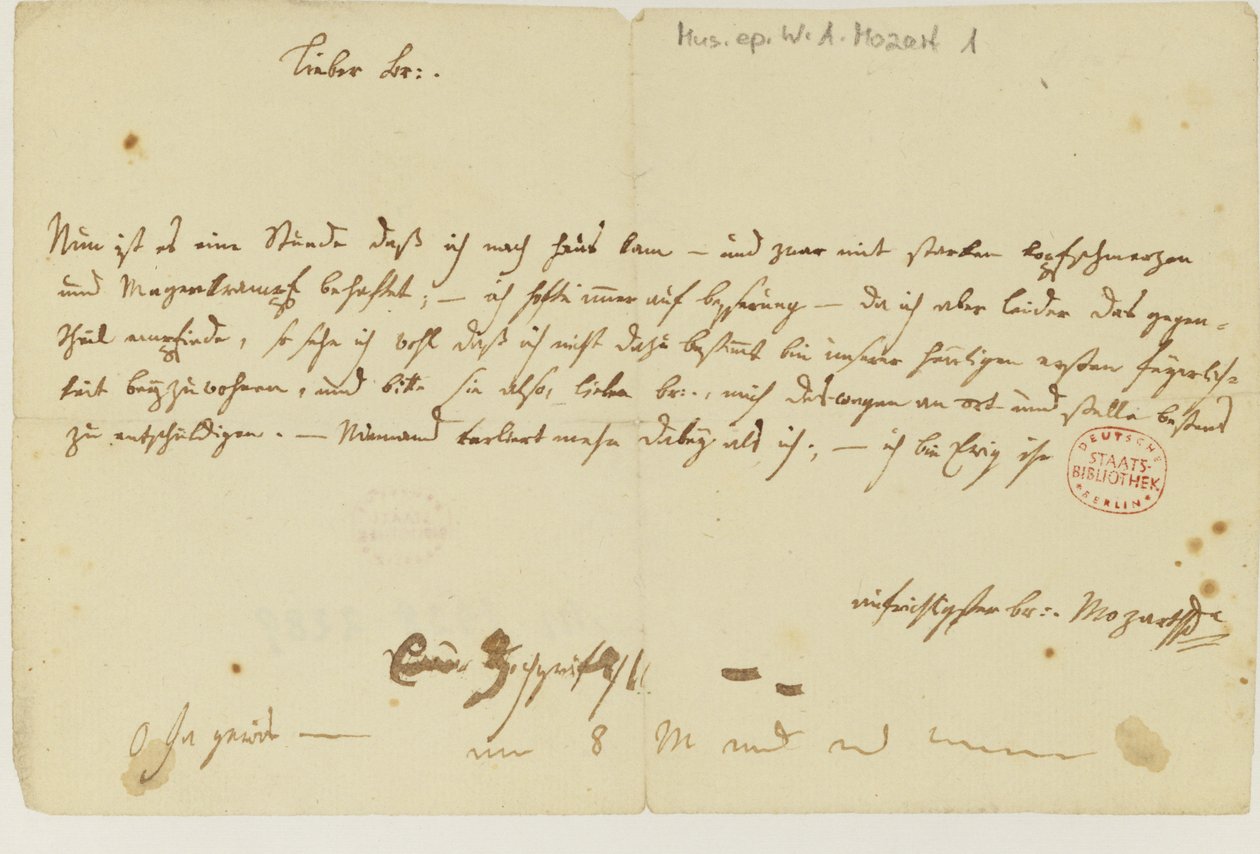 Mus. ep. W. A. Mozart 1
Lieber br:.
Nun ist es eine Stunde daß ich nach haus kam – und zwar mit starken kopfschmerzen
und Magenkrampf behaftet; – ich hofte immer auf besserung – da ich aber leider das gegen-
theil empfinde, so sehe ich wohl daß ich nicht dazu bestimmt bin unserer heutigen ersten feyerlich-
keit beyzuwohnen, und bitte sie also, lieber br:., mich deswegen an ort und stelle bestens
zu entschuldigen. – Niemand verliert mehr dabey als ich. – ich bin Ewig ihr
DEUTSCHE
STAATS-
BIBLIOTHEK
BERLIN
aufrichtigster br:. Mozart
Hochgräfl
O Ja gewis
8 M und